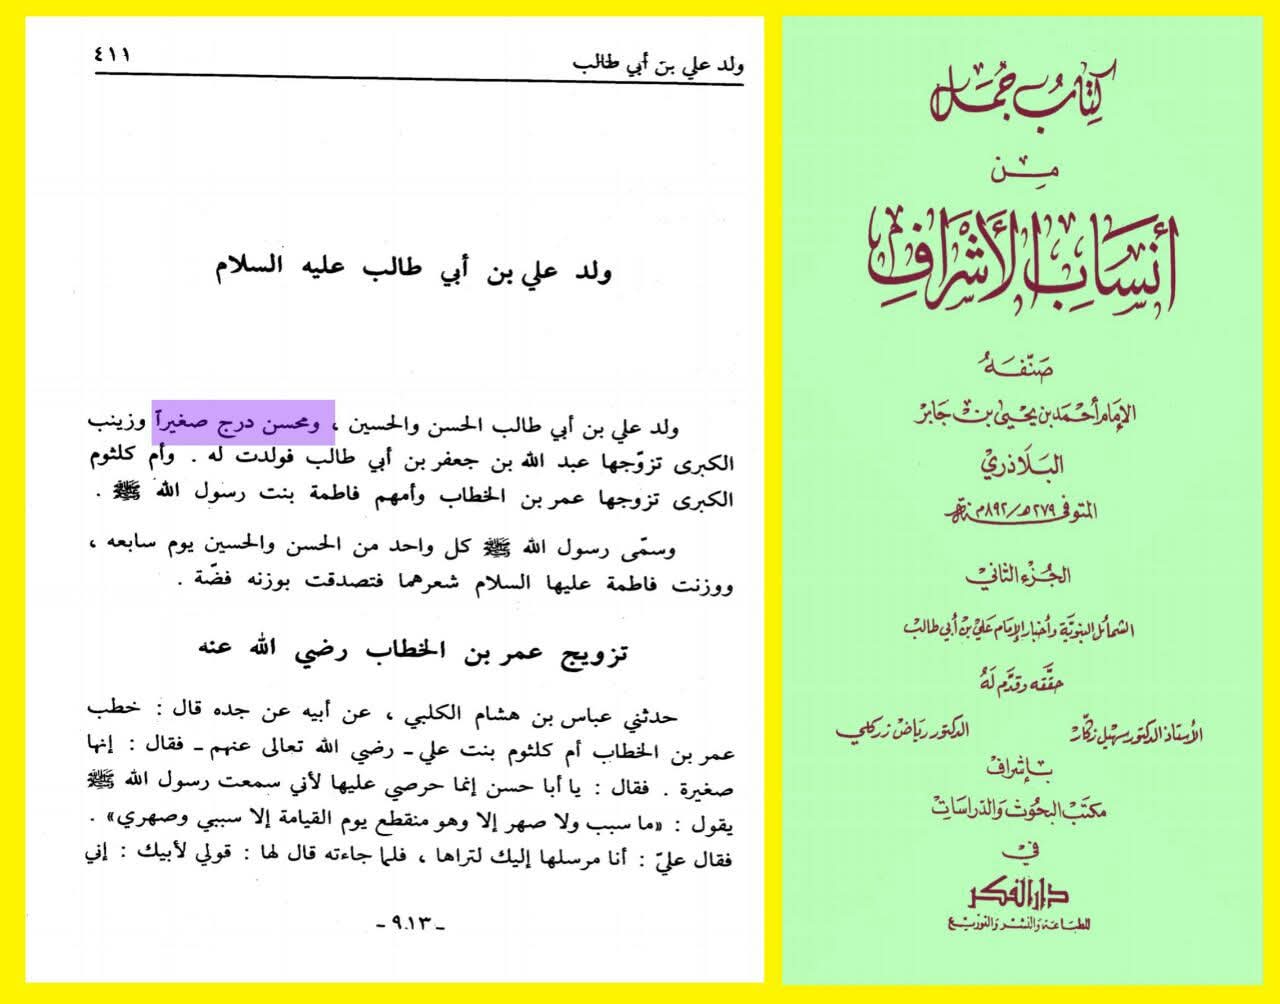 ولد علي بن أبي طالب ٤١١
ولد علي بن أبي طالب عليه السلام
ولد علي بن أبي طالب الحسن والحسين ، ومحسن درج صغيراً وزينب
الكبرى تزوّجها عبد الله بن جعفر بن أبي طالب فولدت له . وأم كلثوم
الكبرى تزوجها عمر بن الخطاب وأمهم فاطمة بنت رسول الله ﷺ .
وسمّى رسول الله ﷺ كل واحد من الحسن والحسين يوم سابعه ،
ووزنت فاطمة عليها السلام شعرهما فتصدقت بوزنه فضّة .
تزويج عمر بن الخطاب رضي الله عنه
حدثني عباس بن هشام الكلبي ، عن أبيه عن جده قال : خطب
عمر بن الخطاب أم كلثوم بنت علي ـ رضي الله تعالى عنهم ـ فقال : إنها
صغيرة . فقال : يا أبا حسن إنما حرصي عليها لأني سمعت رسول الله ﷺ
يقول : «ما سبب ولا صهر إلا وهو منقطع يوم القيامة إلا سببي وصهري» .
فقال عليّ : أنا مرسلها إليك لتراها ، فلما جاءته قال لها : قولي لأبيك : إني
ـ ٩١٣ ـ
كتاب جمل
من
أنساب الأشراف
صنّفه
الإمام أحمد بن يحيى بن جابر
البلاذري
المتوفى سنة ٢٧٩هـ/٨٩٢م
الجزء الثاني
الشمائل النبوية وأخبار الإمام علي بن أبي طالب
حقّقه وقدّم له
الأستاذ الدكتور سهيل زكّار الدكتور رياض زركلي
بإشراف
مكتب البحوث والدراسات
في
دار الفكر
للطباعة والنشر والتوزيع